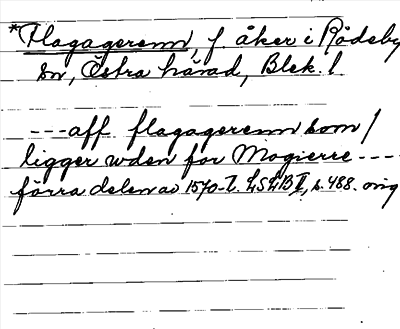 *Flagagerenn, f. åker i Rödeby
sn, Östra härad, Blek. l.
---aff flagagerenn som /
ligger wden for Mogierre ----
förra delen av 1570-t. LSLB II, s. 488. orig